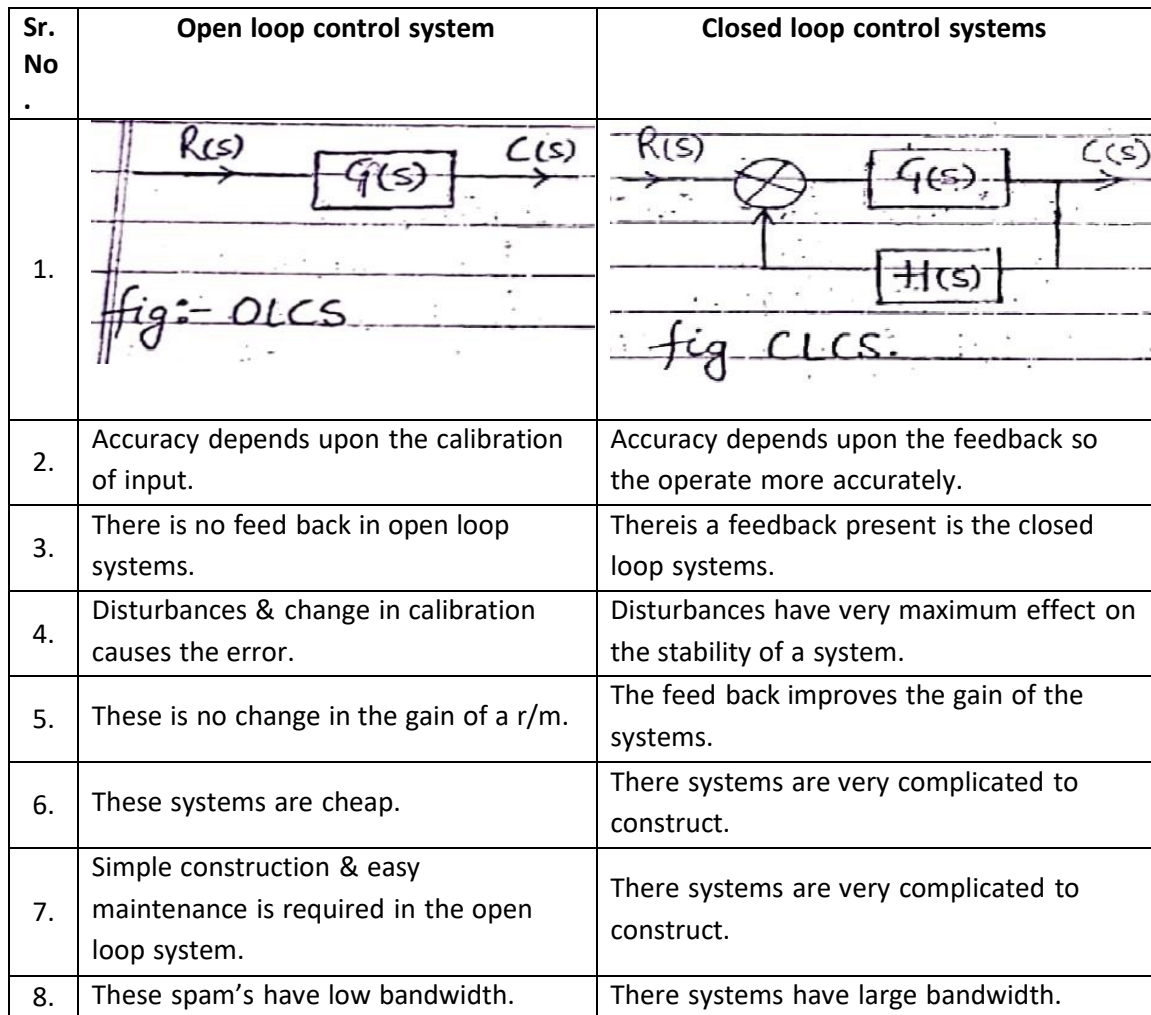 Sr.
No
.
Open loop control system
Closed loop control systems
1.
R(s)
G(s)
C(s)
fig:- OLCS
R(s)
G(s)
C(s)
H(s)
fig CLCS.
2.
Accuracy depends upon the calibration
of input.
Accuracy depends upon the feedback so
the operate more accurately.
3.
There is no feed back in open loop
systems.
Thereis a feedback present is the closed
loop systems.
4.
Disturbances & change in calibration
causes the error.
Disturbances have very maximum effect on
the stability of a system.
5.
These is no change in the gain of a r/m.
The feed back improves the gain of the
systems.
6.
These systems are cheap.
There systems are very complicated to
construct.
7.
Simple construction & easy
maintenance is required in the open
loop system.
There systems are very complicated to
construct.
8.
These spam's have low bandwidth.
There systems have large bandwidth.